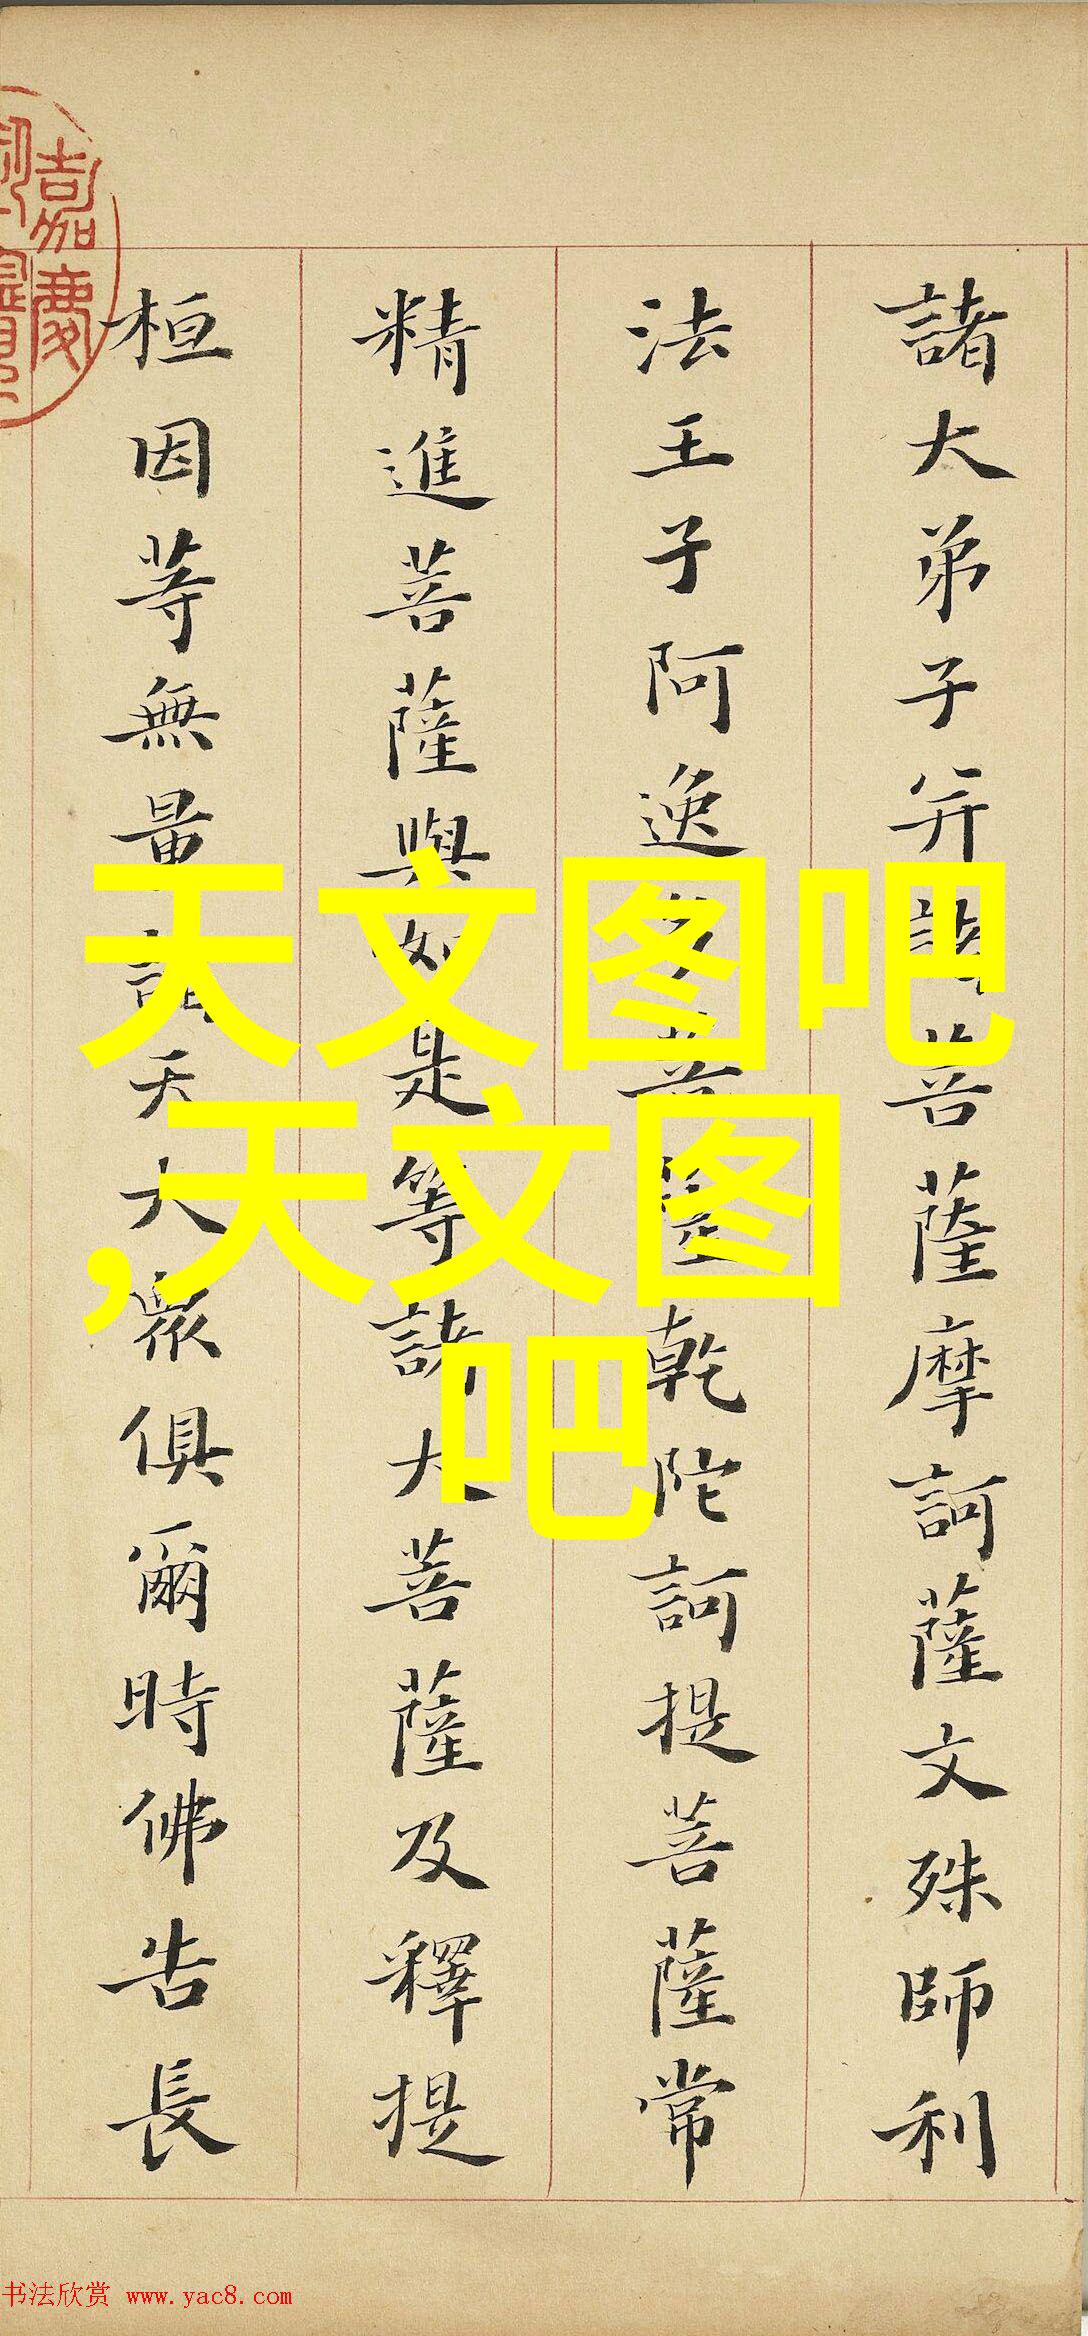 諸大弟子并諸菩薩摩訶薩文殊師利
法王子阿逸多菩薩乾陀訶提菩薩常
精進菩薩與如是等諸大菩薩及釋提
桓因等無量諸天大衆俱爾時佛告長
嘉慶
天文图吧
,天文图
吧
书法欣赏 www.yac8.com